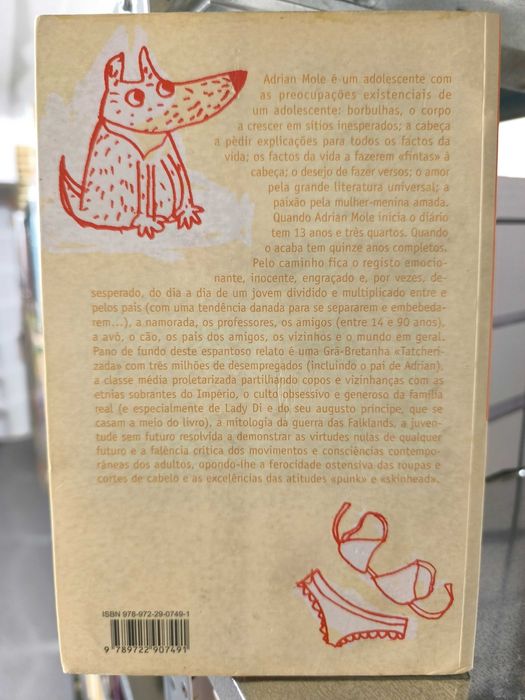 Adrian Mole é um adolescente com
as preocupações existenciais de
um adolescente: borbulhas, o corpo
a crescer em sítios inesperados; a cabeça
a pèdir explicações para todos os factos da
vida; os factos da vida a fazerem «fintas» à
cabeça; o desejo de fazer versos; o amor
pela grande literatura universal; a
paixão pela mulher-menina amada.
Quando Adrian Mole inicia o diário
tem 13 anos e três quartos. Quando
o acaba tem quinze anos completos.
Pelo caminho fica o registo emocio-
nante, inocente, engraçado e, por vezes, de-
sesperado, do dia a dia de um jovem dividido e multiplicado entre e
pelos pais (com uma tendência danada para se separarem e embebeda-
rem...), a namorada, os professores, os amigos (entre 14 e 90 anos),
a avó, o cão, os pais dos amigos, os vizinhos e o mundo em geral.
Pano de fundo deste espantoso relato é uma Grã-Bretanha «Tatcheri-
zada» com três milhões de desempregados (incluindo o pai de Adrian),
a classe média proletarizada partilhando copos e vizinhanças com as
etnias sobrantes do Império, o culto obsessivo e generoso da família
real (e especialmente de Lady Di e do seu augusto príncipe, que se
casam a meio do livro), a mitologia da guerra das Falklands, a juven-
tude sem futuro resolvida a demonstrar as virtudes nulas de qualquer
futuro e a falência crítica dos movimentos e consciências contempo-
râneas dos adultos, opondo-lhe a ferocidade ostensiva das roupas e
cortes de cabelo e as excelências das atitudes «punk» e «skinhead».
ISBN 978-972-29-0749-1
9 789722 907491